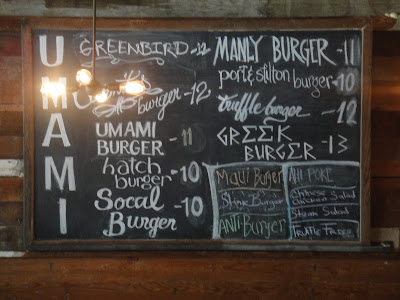 UMAMI
GREENBIRD -12
burger -12
UMAMI
BURGER -11
hatch
burger -10
SoCal
Burger -10
MANLY BURGER -11
port & stilton burger -10
truffle burger - 12
GREEK
BURGER -13
Maui Burger
Burger
ANTI Burger
AHI POKE
Chinese
Chicken Salad
Steak Salad
TRUFFLE FRIES